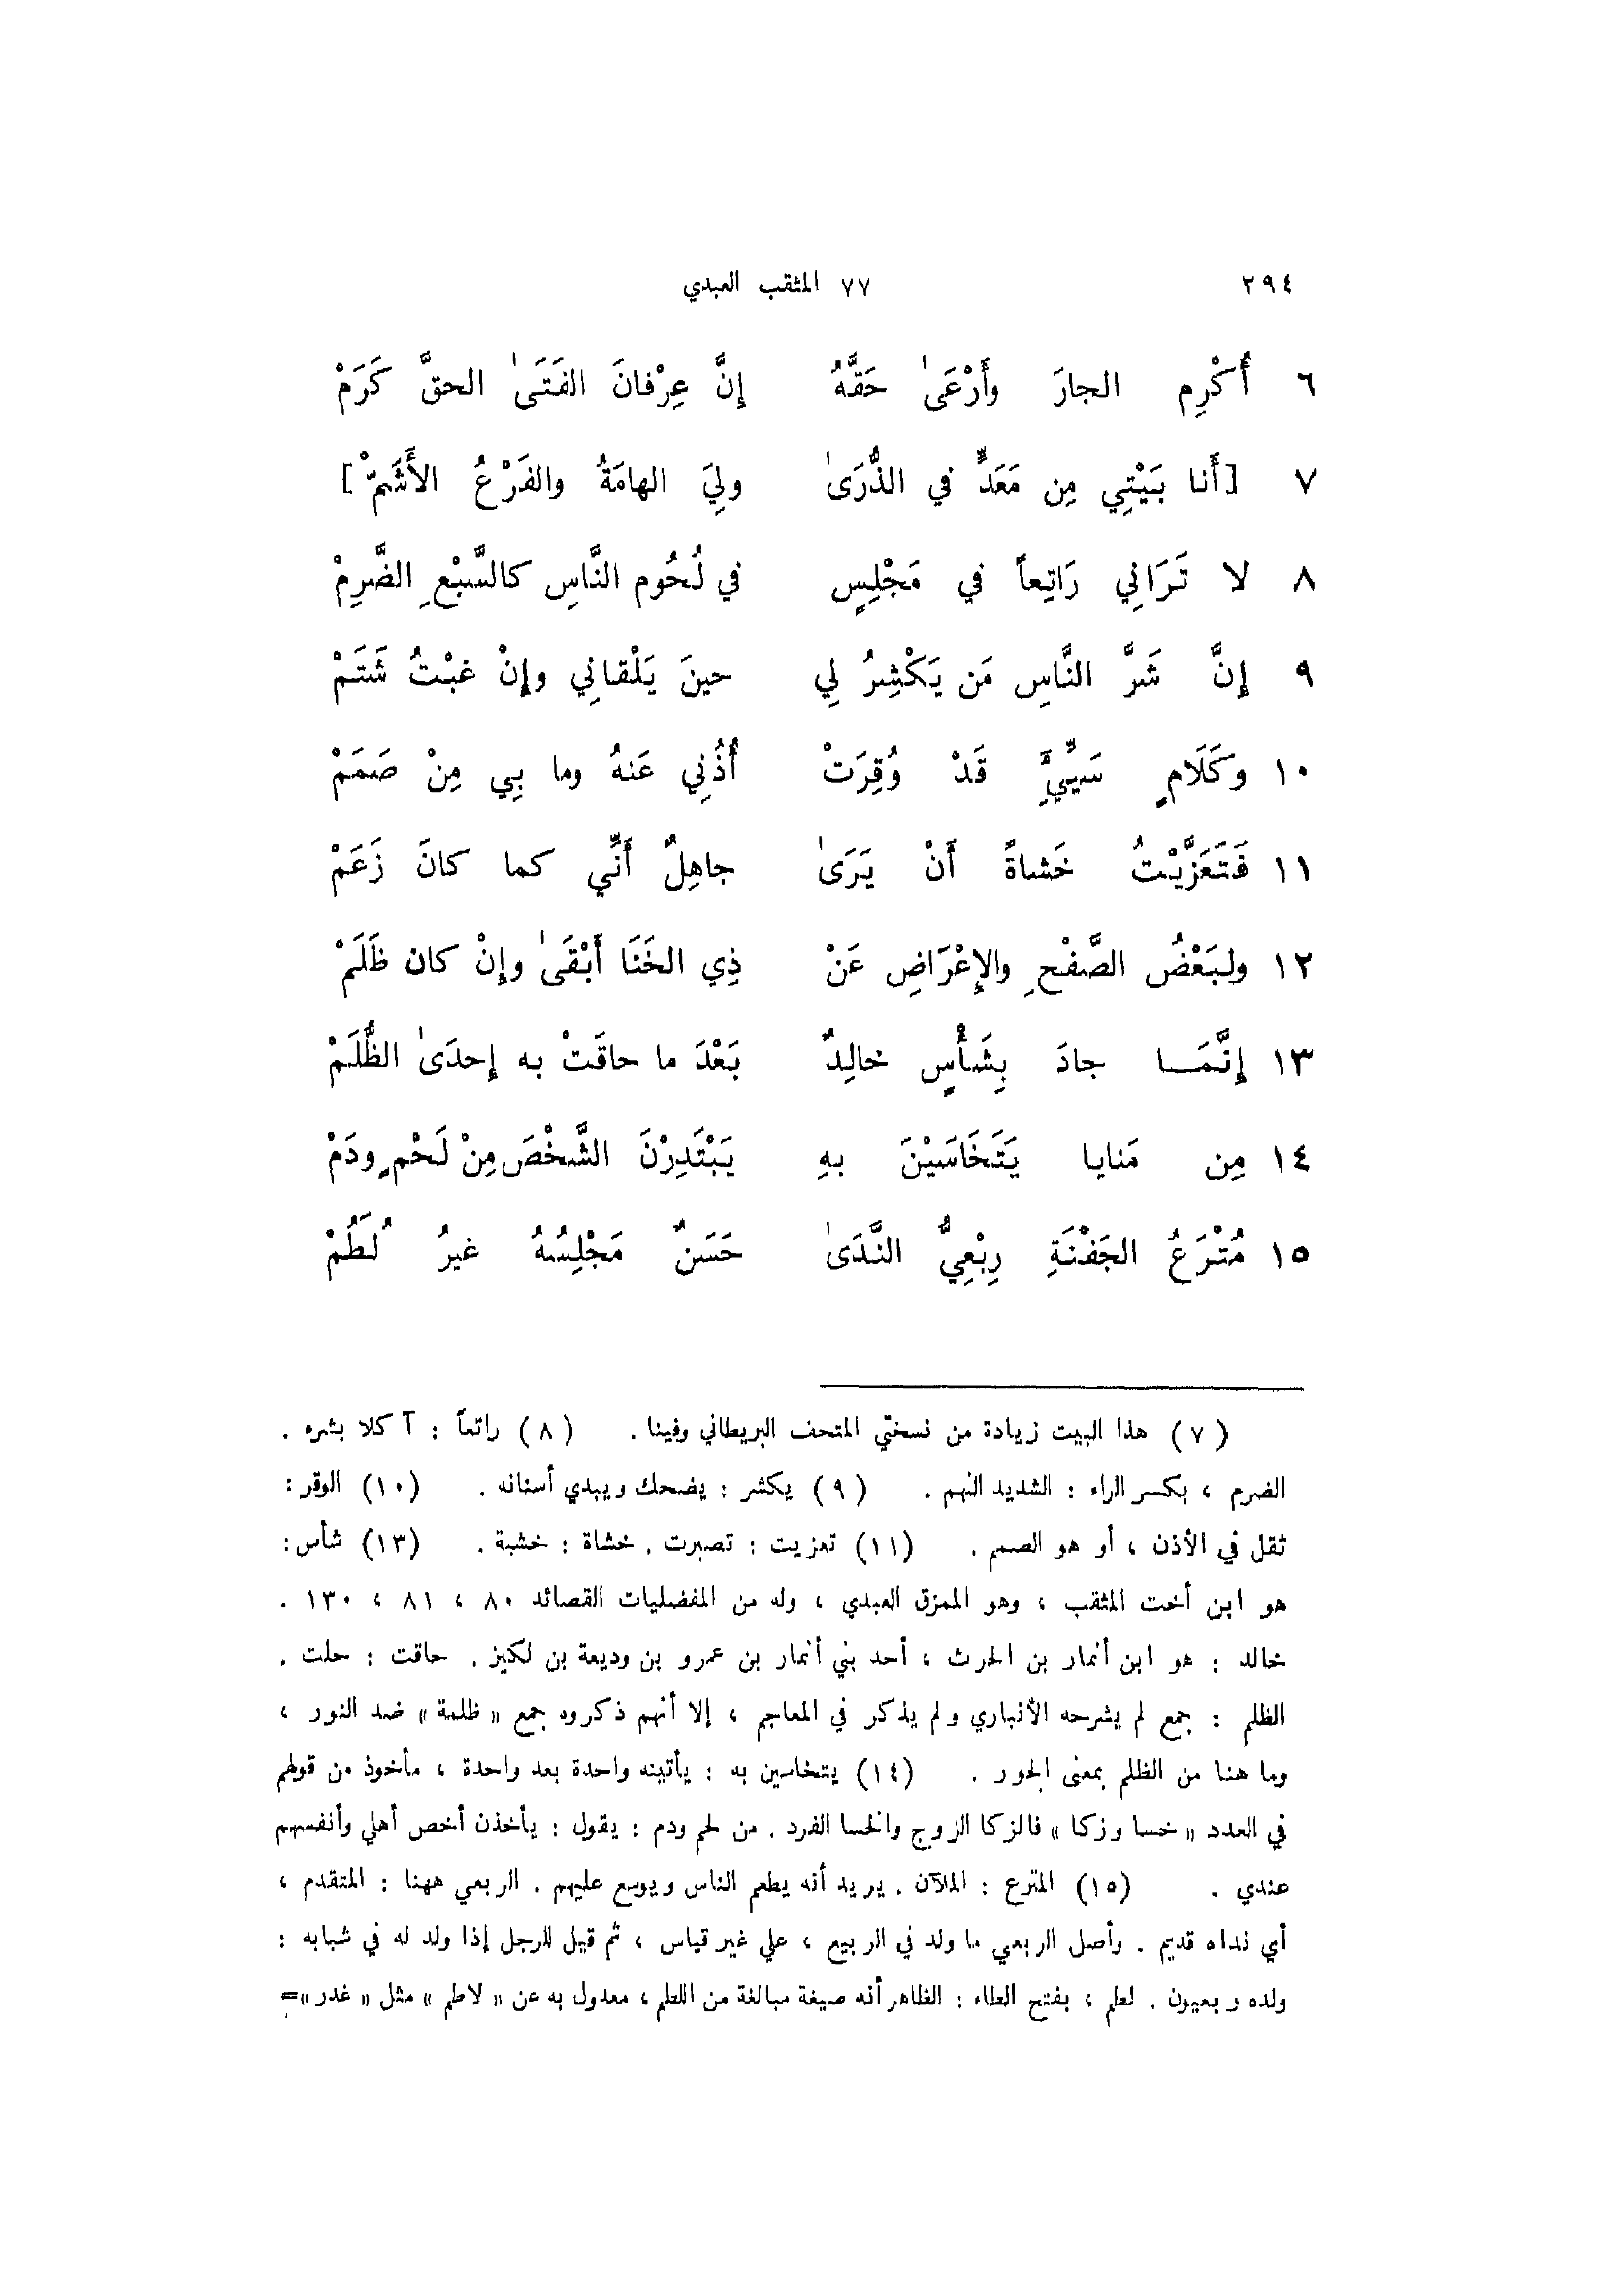 ٢٩٤ ٧٧ المثقب العبدي
٦ أَكْرِمِ الجارَ وأَرْعَىٰ حَقَّهُ إِنَّ عِرْفانَ الفَتَىٰ الحقَّ كَرَمْ
٧ [أَنا بَيْتِي مِن مَعَدٍّ في الذُّرَىٰ ولِيَ الهامَةُ والفَرْعُ الأَشَمّْ]
٨ لا تَرَانِي رَاتِعاً في مَجْلِسٍ في لُحُومِ النَّاسِ كالسَّبْعِ الضَّرِمْ
٩ إِنَّ شَرَّ النَّاسِ مَن يَكْشِرُ لِي حينَ يَلْقانِي وإِنْ غبْتُ شَتَمْ
١٠ وكَلَامٍ سَيِّئٍ قَدْ وُقِرَتْ أُذُنِي عَنهُ وما بِي مِنْ صَمَمْ
١١ فَتَعَزَّيْتُ خَشاةً أَنْ يَرَىٰ جاهِلٌ أَنِّي كما كانَ زَعَمْ
١٢ ولَبَعْضُ الصَّفْحِ والإِعْرَاضِ عَنْ ذِي الخَنَا أَبْقَىٰ وإِنْ كان ظَلَمْ
١٣ إِنَّمَا جادَ بِشَأْسٍ خالِدٌ بَعْدَ ما حاقَتْ به إِحدَىٰ الظُّلَمْ
١٤ مِن مَنايا يَتَخَاسَيْنَ بهِ يَبْتَدِرْنَ الشَّخْصَ مِنْ لَحْمٍ ودَمْ
١٥ مُتْرَعُ الجَفْنَةِ رِبْعِيُّ النَّدَىٰ حَسَنٌ مَجْلِسُهُ غيرُ لُطَمْ
(٧) هذا البيت زيادة من نسختي المتحف البريطاني وفينا . (٨) راتعاً : آكلا بشره .
الضرم ، بكسر الراء : الشديد النهم . (٩) يكشر : يضحك ويبدي أسنانه . (١٠) الوقر :
ثقل في الأذن ، أو هو الصمم . (١١) تعزيت : تصبرت . خشاة : خشية . (١٣) شأس :
هو ابن أخت المثقب ، وهو الممزق العبدي ، وله من المفضليات القصائد ٨٠ ، ٨١ ، ١٣٠ .
خالد : هو ابن أنمار بن الحرث ، أحد بني أنمار بن عمرو بن وديعة بن لكيز . حاقت : حلت .
الظلم : جمع لم يشرحه الأنباري ولم يذكر في المعاجم ، إلا أنهم ذكروه جمع « ظلمة » ضد النور ،
وما هنا من الظلم بمعنى الجور . (١٤) يتخاسين به : يأتينه واحدة بعد واحدة ، مأخوذ من قولهم
في العدد « خسا وزكا » فالزكا الزوج والخسا الفرد . من لحم ودم : يقول : يأخذن أخص أهلي وأنفسهم
عندي . (١٥) المترع : الملآن . يريد أنه يطعم الناس ويوسع عليهم . الربعي ههنا : المتقدم ،
أي نداه قديم . وأصل الربعي ما ولد في الربيع ، علي غير قياس ، ثم قيل للرجل إذا ولد له في شبابه :
ولده ربعيون . لطم ، بفتح الطاء : الظاهر أنه صيغة مبالغة من اللطم ، معدول به عن « لاطم » مثل « غدر »=